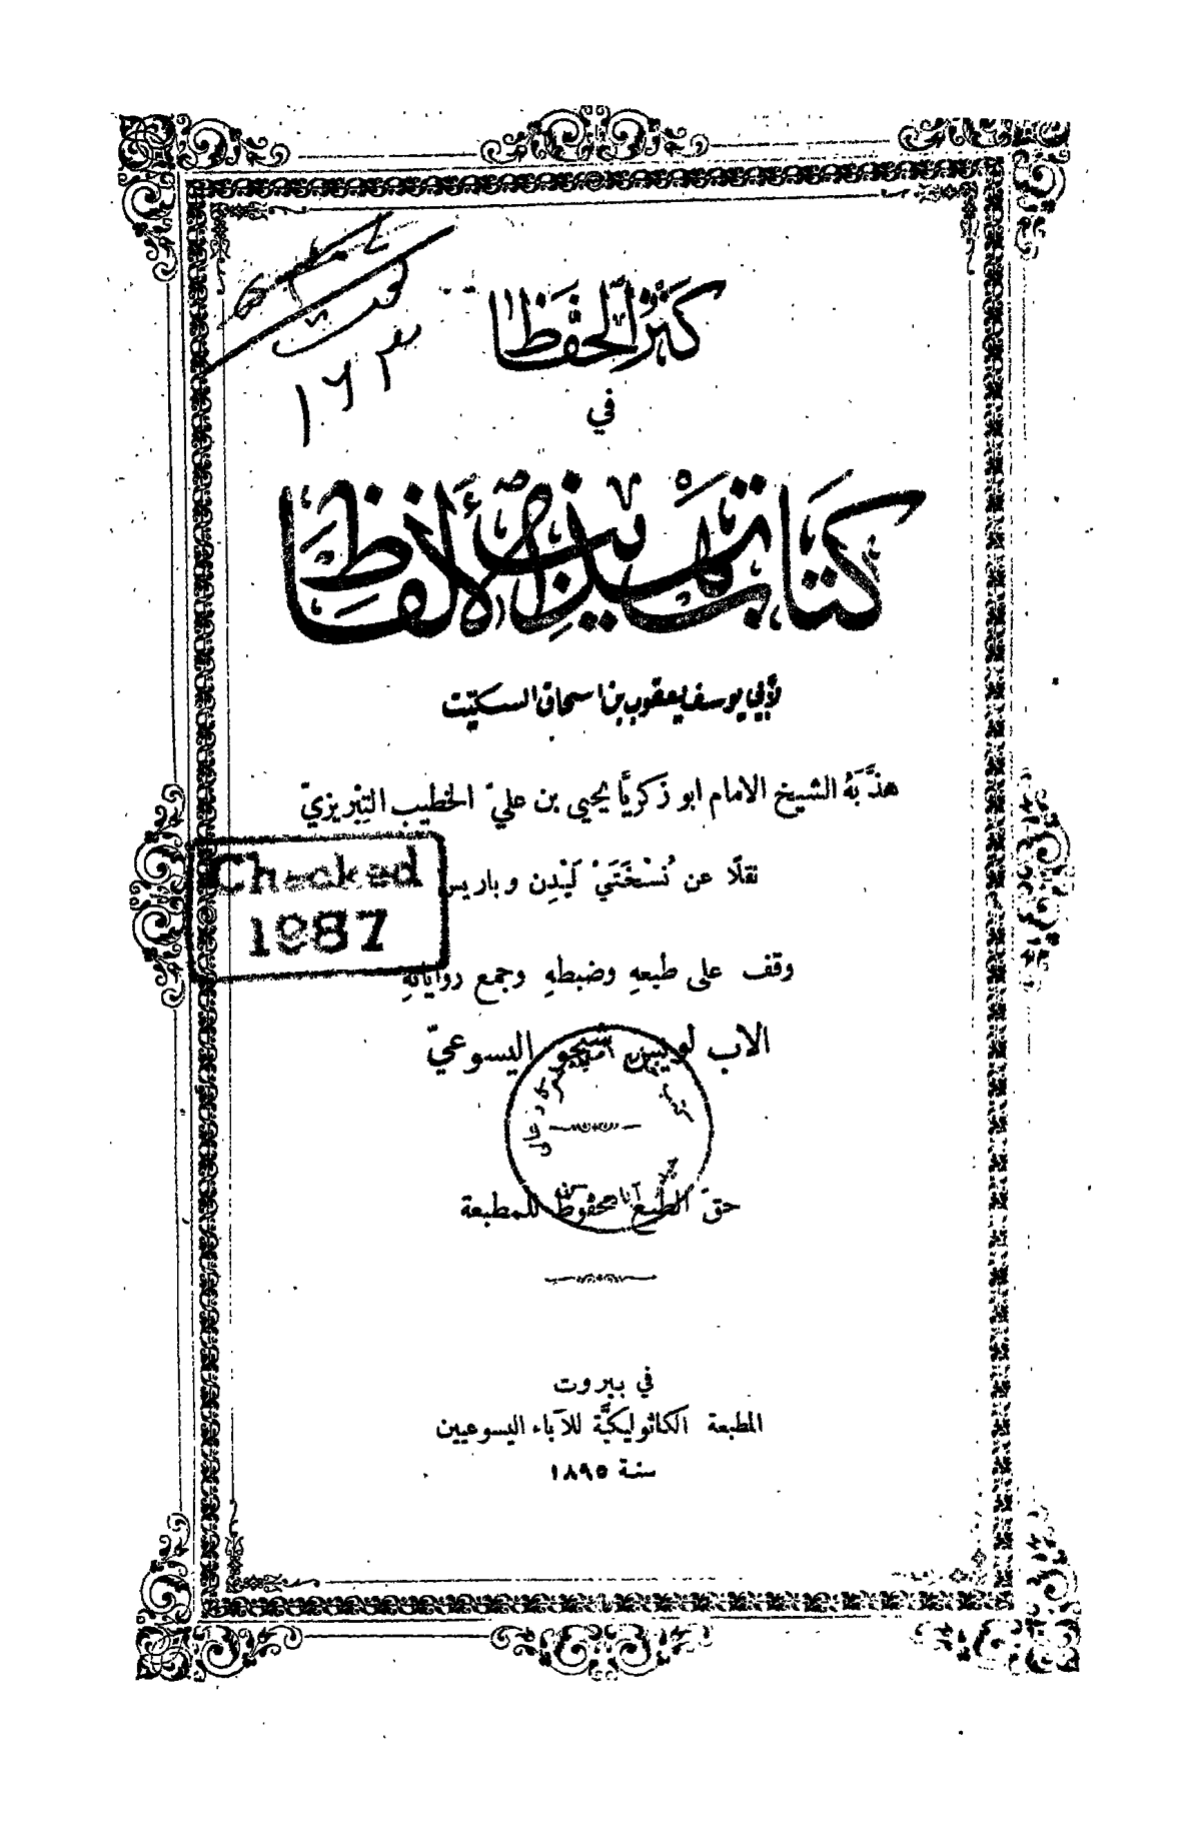 كَنْزُ الحُفَّاظ
في
كتاب تهذيب الألفاظ
لأبي يوسف يعقوب بن اسحاق السكيّت
هذَّبَهُ الشيخ الامام ابو زَكَريَّا يحيى بن عليّ الخطيب التِّبْرِيزيّ
نقلًا عن نُسْخَتَيْ لَيْدِن وباريس
Checked
1987
وقف على طبعهِ وضبطهِ وجمع رواياتهِ
الاب لويس شيخو اليسوعيّ
حقّ الطبع محفوظ للمطبعة
في بيروت
المطبعة الكاثوليكيَّة للآباء اليسوعيين
سنة ١٨٩٥